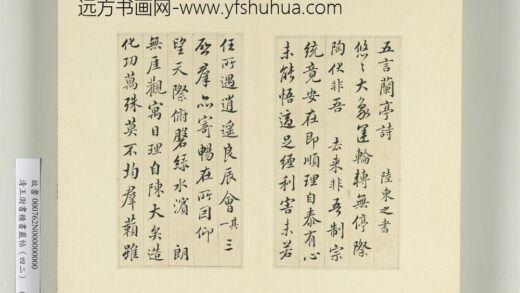 远方书画网-www.yfshuhua.com
五言蘭亭詩 陸柬之書
悠〻大象運輪轉無停際
陶化非吾 去来非吾制宗
統竟安在即順理自泰有心
未能悟適足纏利害未若
任所遇逍遥良辰會 其一 三
啓羣品寄暢在所因仰
望天際俯磐綠水濱 朗
無厓觀寓目理自陳大矣造
化功萬殊莫不均羣籟雖
故書 000762N000000000
清王澍書積書巖帖(四二)